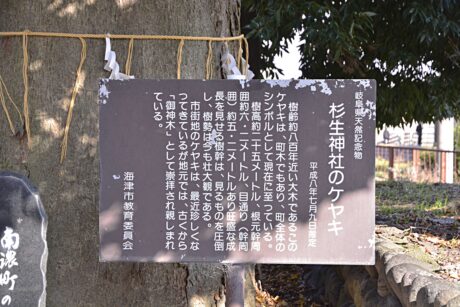 岐阜県天然記念物
杉生神社のケヤキ
平成八年七月九日指定
樹齢約八百年近い大木であるこの
ケヤキは、町木でもあり、町全体の
シンボルとして現在に至っている。
樹高約二十五メートル、根元幹周
囲約六・二メートル、目通り(幹周
囲)約五・二メートルあり旺盛な成
長を見せる樹幹は、見るものを圧倒
し、樹勢は今も壮大観である。
市街地のケヤキは、最近珍しくな
ってきているが地元では、古くから
「御神木」として崇拝され親しまれ
ている。
海津市教育委員会
南濃町の